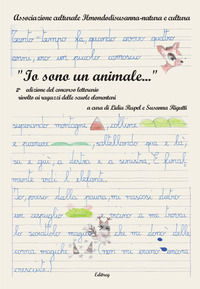 Associazione culturale Ilmondodisusanna-natura e cultura
Tanto tempo fa, quando avevo quattro
anni, ero un piccolo
"Io sono un animale..."
2ª edizione del concorso letterario
rivolto ai ragazzi delle scuole elementari
a cura di Lidia Rupel e Susanna Rigutti
superando montagne, colline
e pianure, saltellando qua e là,
su e giù, a destra e a sinistra. E final-
mente vidi l'elefante.
Io, preso dalla paura, mi nascosi dietro
un cespuglio
lo scoiattolo magico che mi donò delle
corna magiche
cresciute!
Editreg